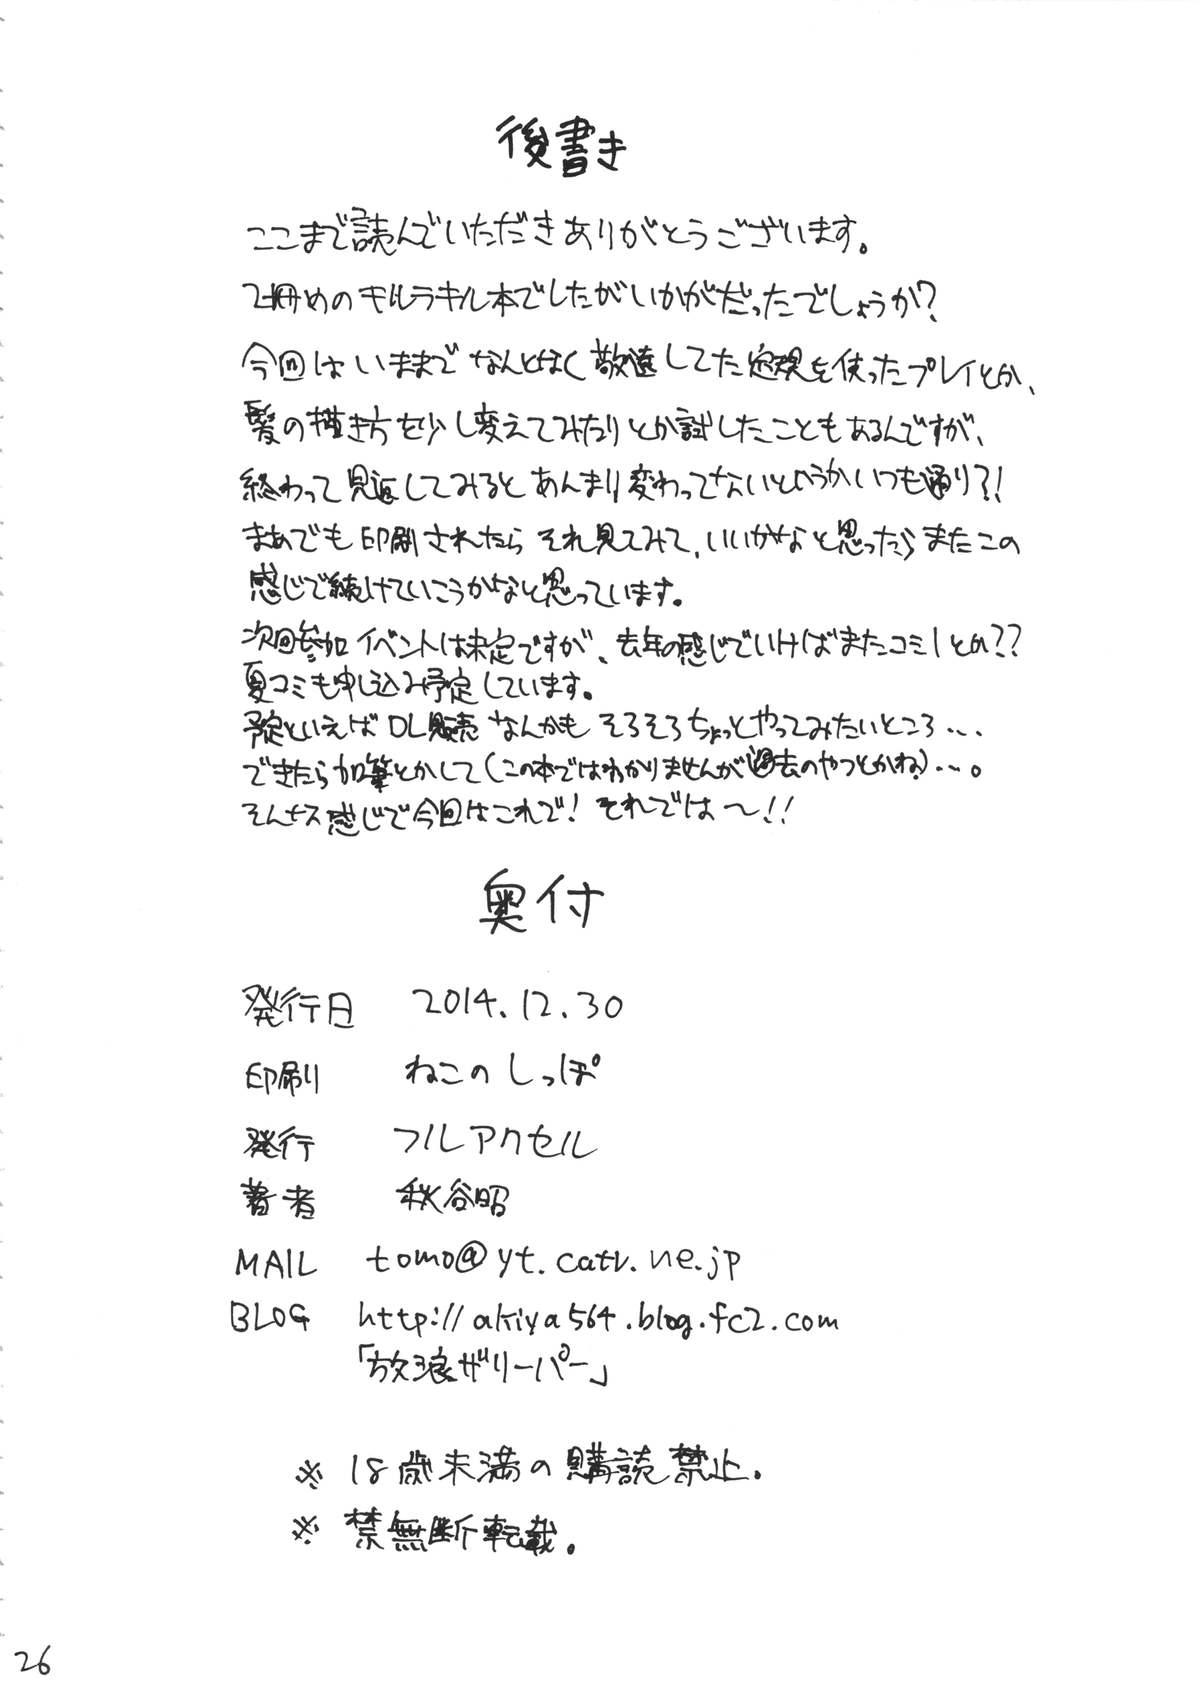 後書き
ここまで読んでいただきありがとうございます。
2冊めのキルラキル本でしたがいかがだったでしょうか?
今回はいままでなんとなく敬遠してた定規を使ったプレイとか、
髪の描き方を少し変えてみたりとか試したこともあるんですが、
終わって見返してみるとあんまり変わってないというかいつも通り?!
まあでも印刷されたらそれ見てみて、いいかなと思ったらまたこの
感じで続けていこうかなと思っています。
次回参加イベントは未定ですが、去年の感じでいけばまたコミ1とか??
夏コミも申し込み予定しています。
予定といえばDL販売なんかもそろそろちょっとやってみたいところ...
できたら加筆とかして(この本ではわかりませんが過去のやつとかね)...。
そんなス感じで今回はこれで! それでは〜!!
奥付
発行日 2014.12.30
印刷 ねこのしっぽ
発行 フルアクセル
著者 秋谷昭
MAIL tomo@yt.catv.ne.jp
BLOG http://akiya564.blog.fc2.com
「放浪ザリーパー」
※ 18歳未満の購読禁止。
※ 禁無断転載。
26